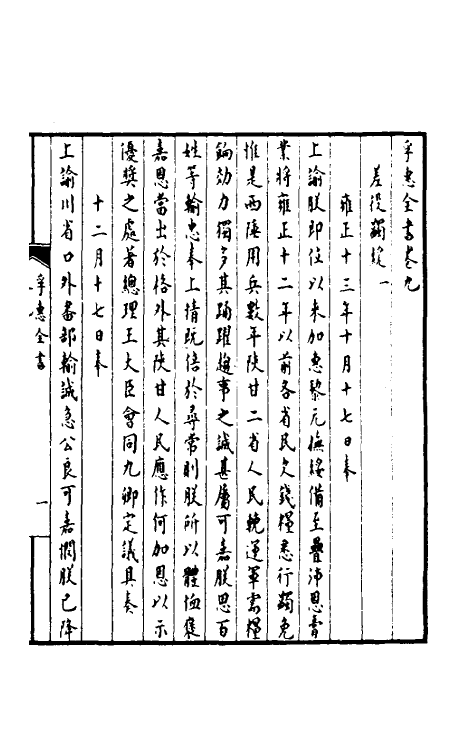 孚惠全書卷九
差役蠲緩一
雍正十三年十月十七日奉
上諭朕即位以來加惠黎元撫綏備至疊沛恩膏
業將雍正十二年以前各省民欠錢糧悉行蠲免
惟是西陲用兵數年陝甘二省人民輓運軍需糧
餉効力獨多其踊躍趨事之誠甚屬可嘉朕思百
姓等輸忠奉上情既倍於尋常則朕所以體恤褒
嘉恩當出於格外其陝甘人民應作何加恩以示
優獎之處著總理王大臣會同九卿定議具奏
十二月十七日奉
上諭川省口外番部輸誠急公良可嘉憫朕已降
孚惠全書
一